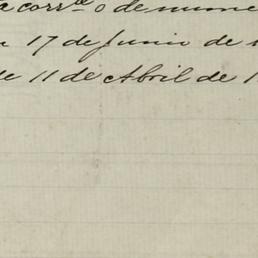 a corr.te o de nume
17 de Junio de
de 11 de Abril de 1